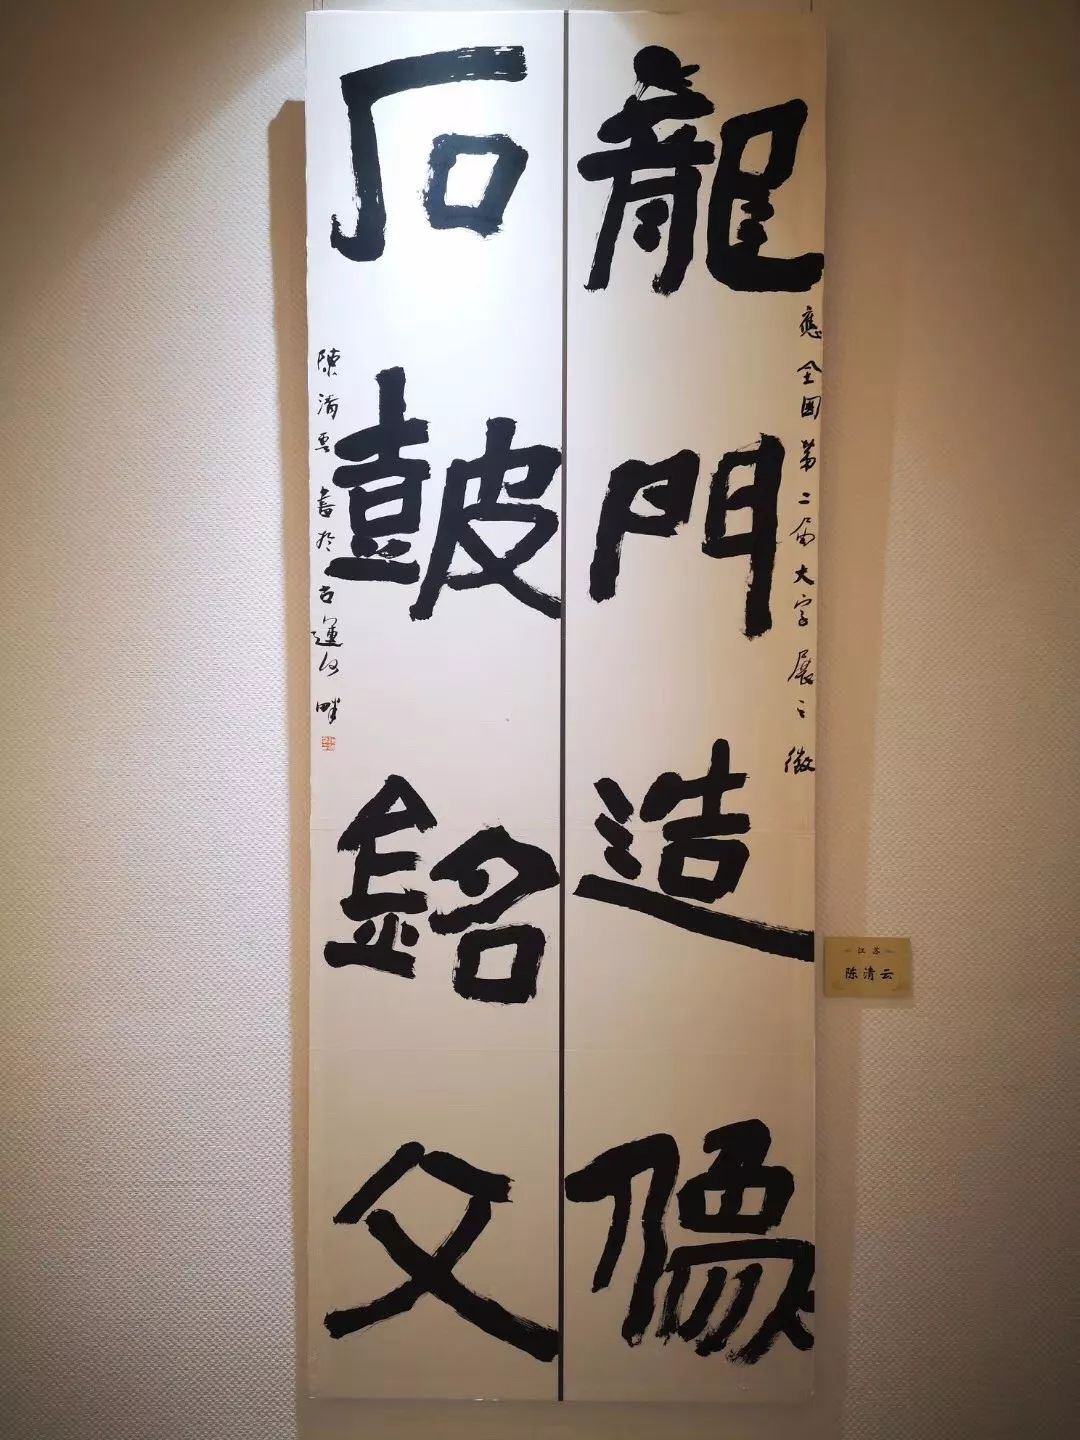 龍門造像
應全國第二届大字展之徵
石鼓銘文
陳清雲書於古運河畔
江苏
陈清云